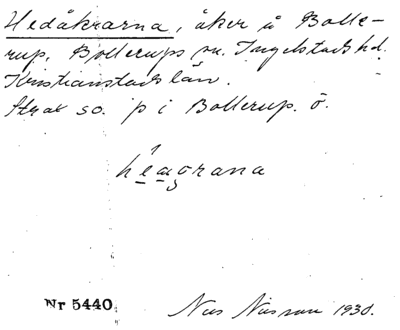 Hedåkrarna, åker å Bolle-
rup, Bollerups sn. Ingelstads hd.
Kristianstads län.
Strax so. p i Bollerup. ö.
Nr 5440.
Nils Nilsson 1930.